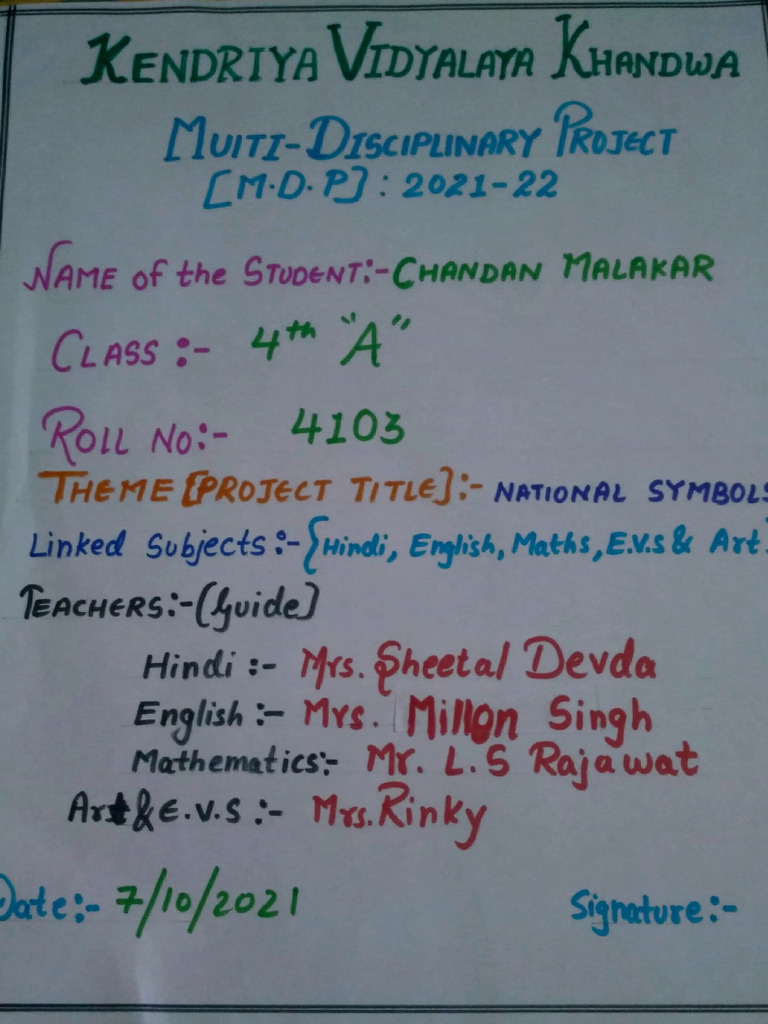 KENDRIYA VIDYALAYA KHANDWA
MUITI-DISCIPLINARY PROJECT
[M.D.P] : 2021-22
NAME of the STUDENT:- CHANDAN MALAKAR
CLASS :- 4th "A"
ROLL NO:- 4103
THEME [PROJECT TITLE]:- NATIONAL SYMBOLS
Linked Subjects :- {Hindi, English, Maths, E.V.S & Art}
TEACHERS:- (Guide)
Hindi :- Mrs. Sheetal Devda
English :- Mrs. Millon Singh
Mathematics:- Mr. L.S Rajawat
Art & E.V.S :- Mrs. Rinky
Date:- 7/10/2021 Signature:-